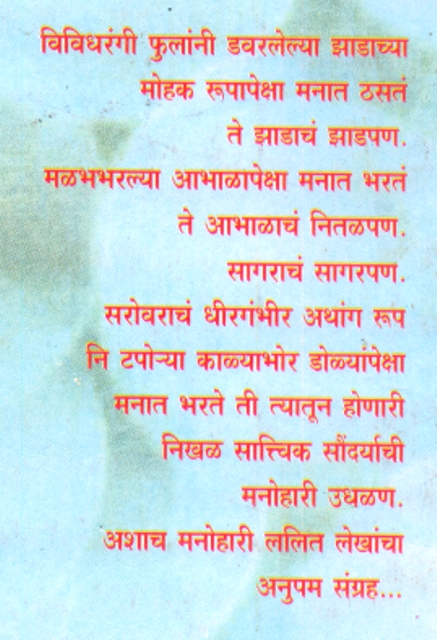 विविधरंगी फुलांनी डवरलेल्या झाडाच्या
मोहक रूपापेक्षा मनात ठसतं
ते झाडाचं झाडपण.
मळभभरल्या आभाळापेक्षा मनात भरतं
ते आभाळाचं नितळपण.
सागराचं सागरपण.
सरोवराचं धीरगंभीर अथांग रूप
नि टपोऱ्या काळ्याभोर डोळ्यांपेक्षा
मनात भरते ती त्यातून होणारी
निखळ सात्त्विक सौंदर्याची
मनोहारी उधळण.
अशाच मनोहारी ललित लेखांचा
अनुपम संग्रह...